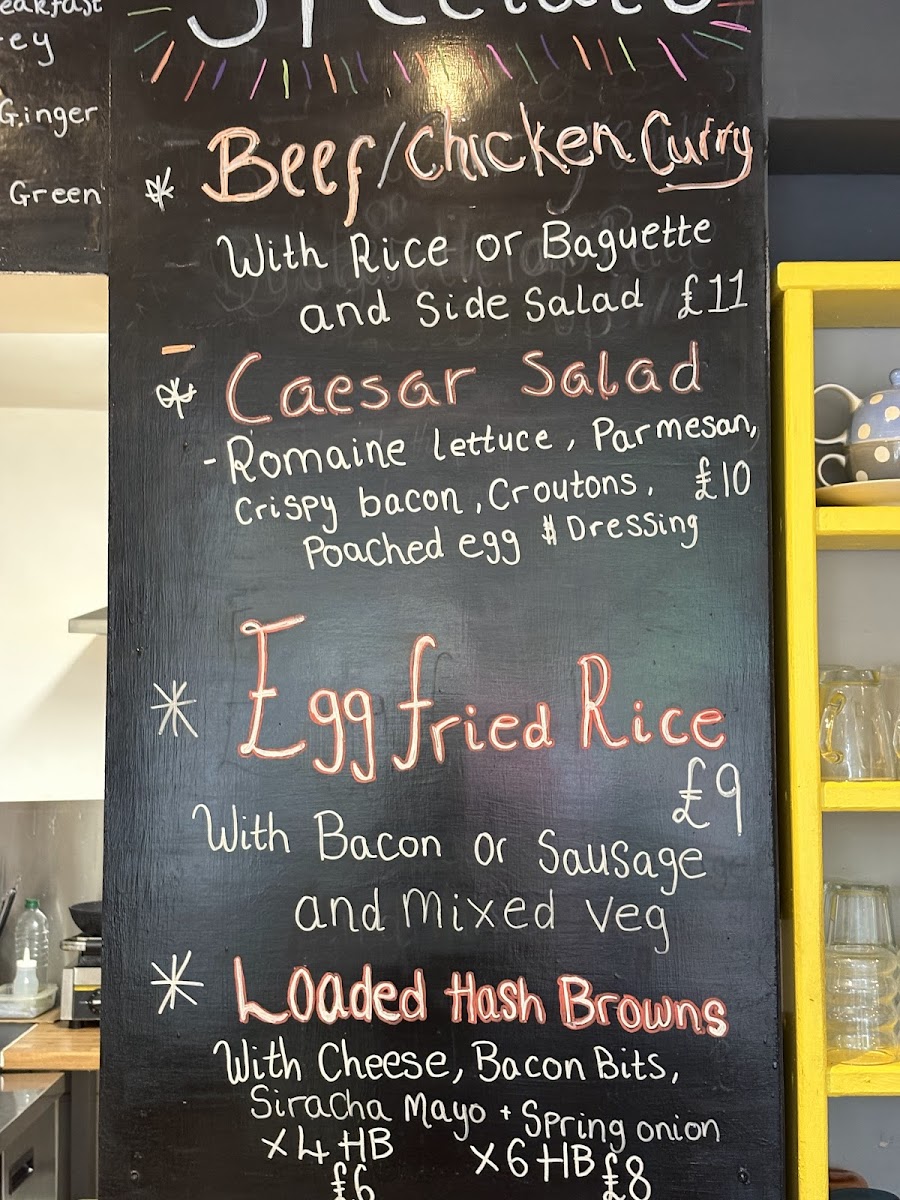 ey
Ginger
Green
Specials
* Beef/Chicken Curry
With Rice or Baguette
and Side Salad £11
* Caesar Salad
- Romaine lettuce, Parmesan,
Crispy bacon, Croutons, £10
Poached egg & Dressing
* Egg fried Rice
£9
With Bacon or Sausage
and mixed veg
* Loaded Hash Browns
With Cheese, Bacon Bits,
Siracha Mayo + Spring onion
x4 HB x6 HB
£6 £8